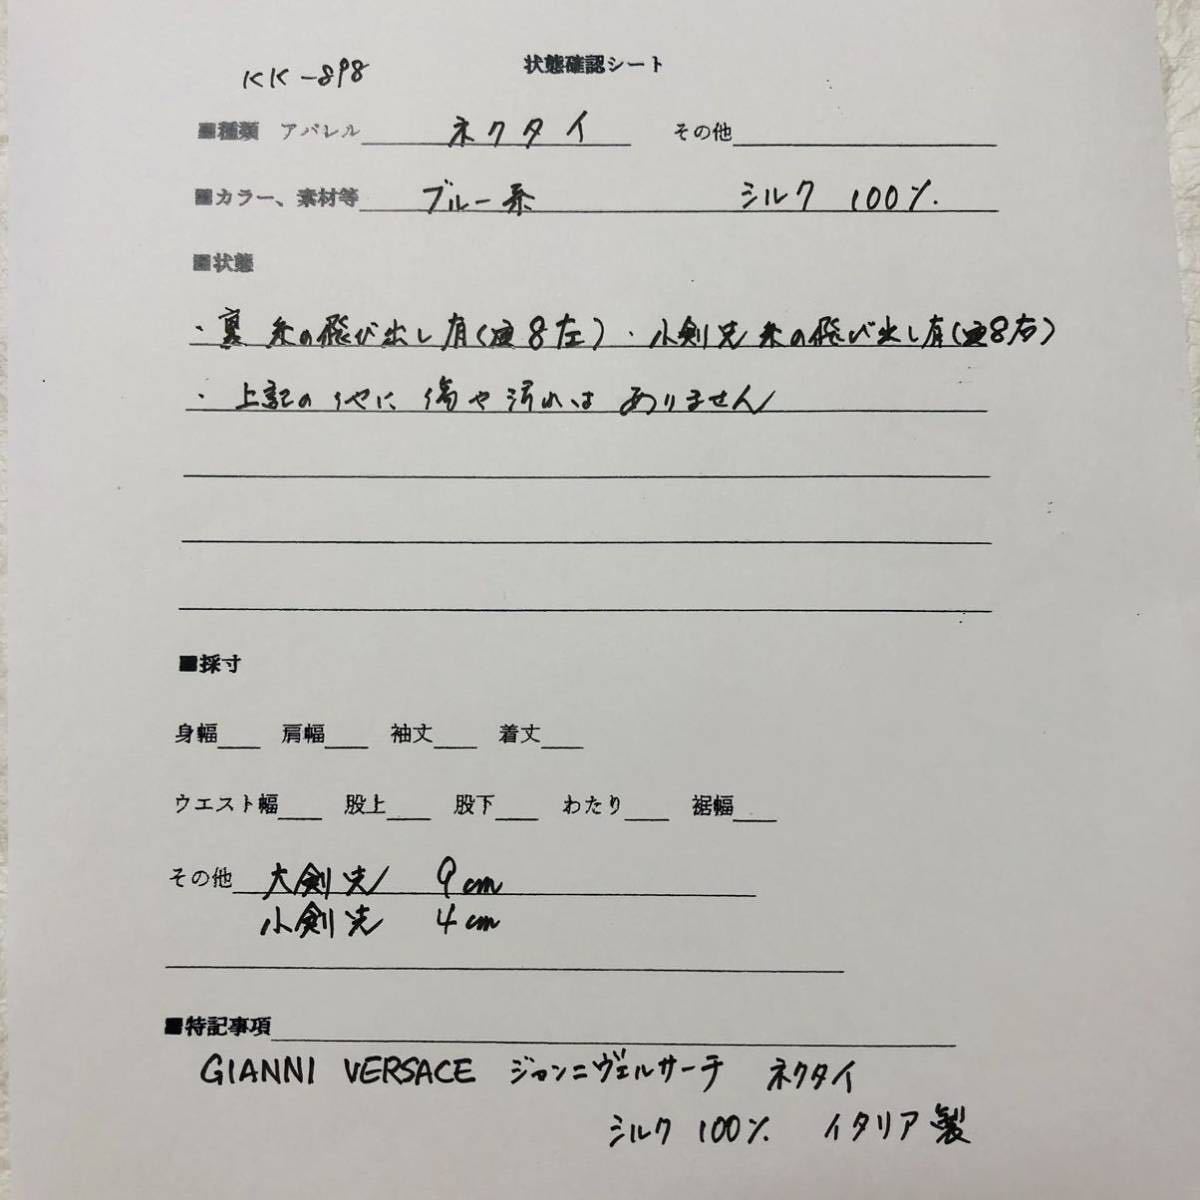 KK-898
状態確認シート
■種類 アパレル ネクタイ その他
■カラー、素材等 ブルー系 シルク 100%
■状態
・裏 糸の飛び出し有(画8左)・小剣先 糸の飛び出し有(画8右)
・上記の他に 傷や汚れは ありません
■採寸
身幅 肩幅 袖丈 着丈
ウエスト幅 股上 股下 わたり 裾幅
その他 大剣先 9cm
小剣先 4cm
■特記事項
GIANNI VERSACE ジャンニヴェルサーチ ネクタイ
シルク 100% イタリア製